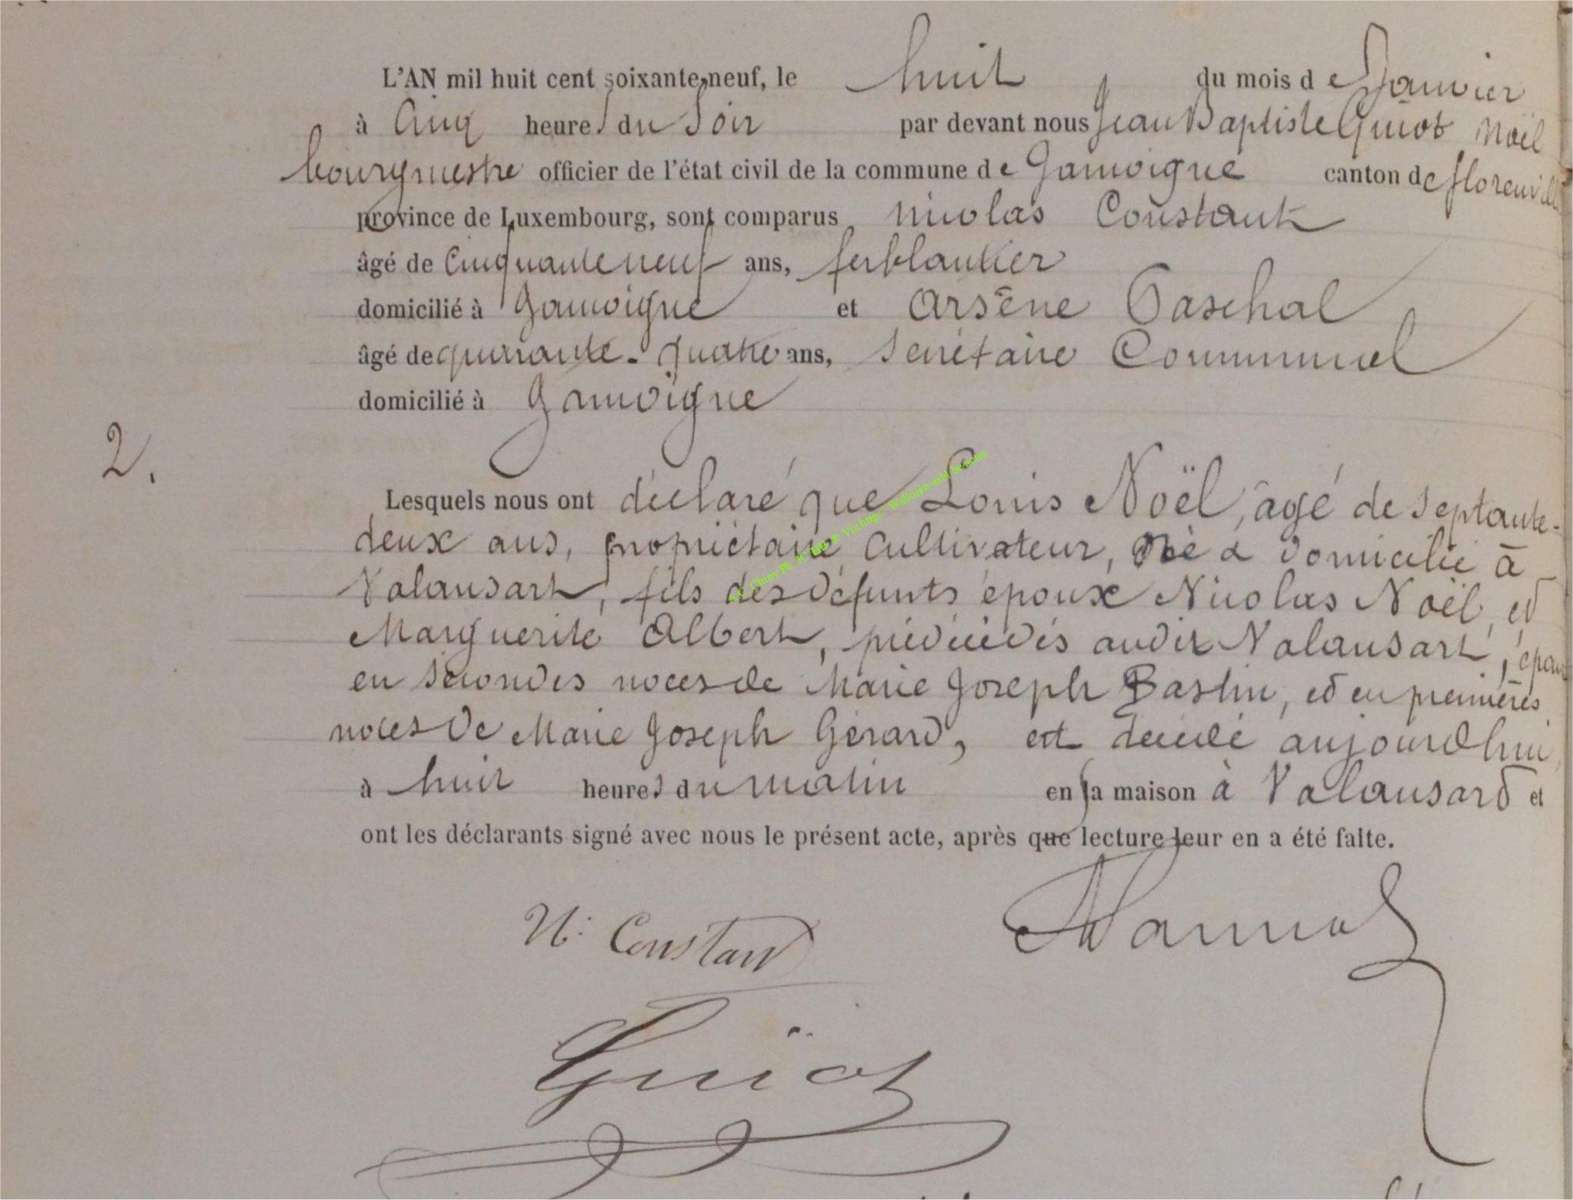 L'AN mil huit cent soixante neuf, le huit du mois de Janvier
à Cinq heures du Soir par devant nous Jean Baptiste Guiot Noël
bourgmestre officier de l'état civil de la commune de Jamoigne canton de florenville
province de Luxembourg, sont comparus Nicolas Constant
âgé de Cinquante neuf ans, ferblantier
domicilié à Jamoigne et Arsène Paschal
âgé de quarante-quatre ans, Secrétaire Communal
domicilié à Jamoigne
2.
Lesquels nous ont déclaré que Louis Noël, âgé de Septante-
deux ans, propriétaire Cultivateur, Né & domicilié à
Valansart, fils des défunts époux Nicolas Noël, et
Marguerite Albert, prédécédés audit Valansart, époux
en Secondes noces de Marie Joseph Bastin, et en premières
noces de Marie Joseph Gérard, est décédé aujourd'hui
à huit heures du matin en sa maison à Valansart et
ont les déclarants signé avec nous le présent acte, après que lecture leur en a été faite.
N. Constant
Guiot